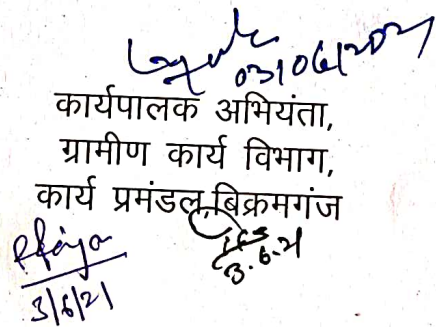 03/06/2021
कार्यपालक अभियंता,
ग्रामीण कार्य विभाग,
कार्य प्रमंडल,बिक्रमगंज
3.6.21
3/6/21